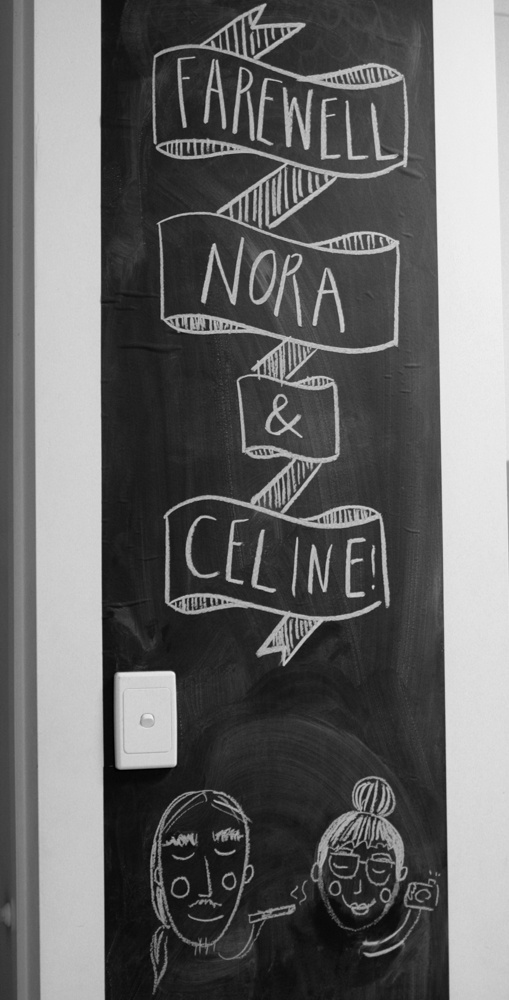 FAREWELL
NORA
&
CELINE!